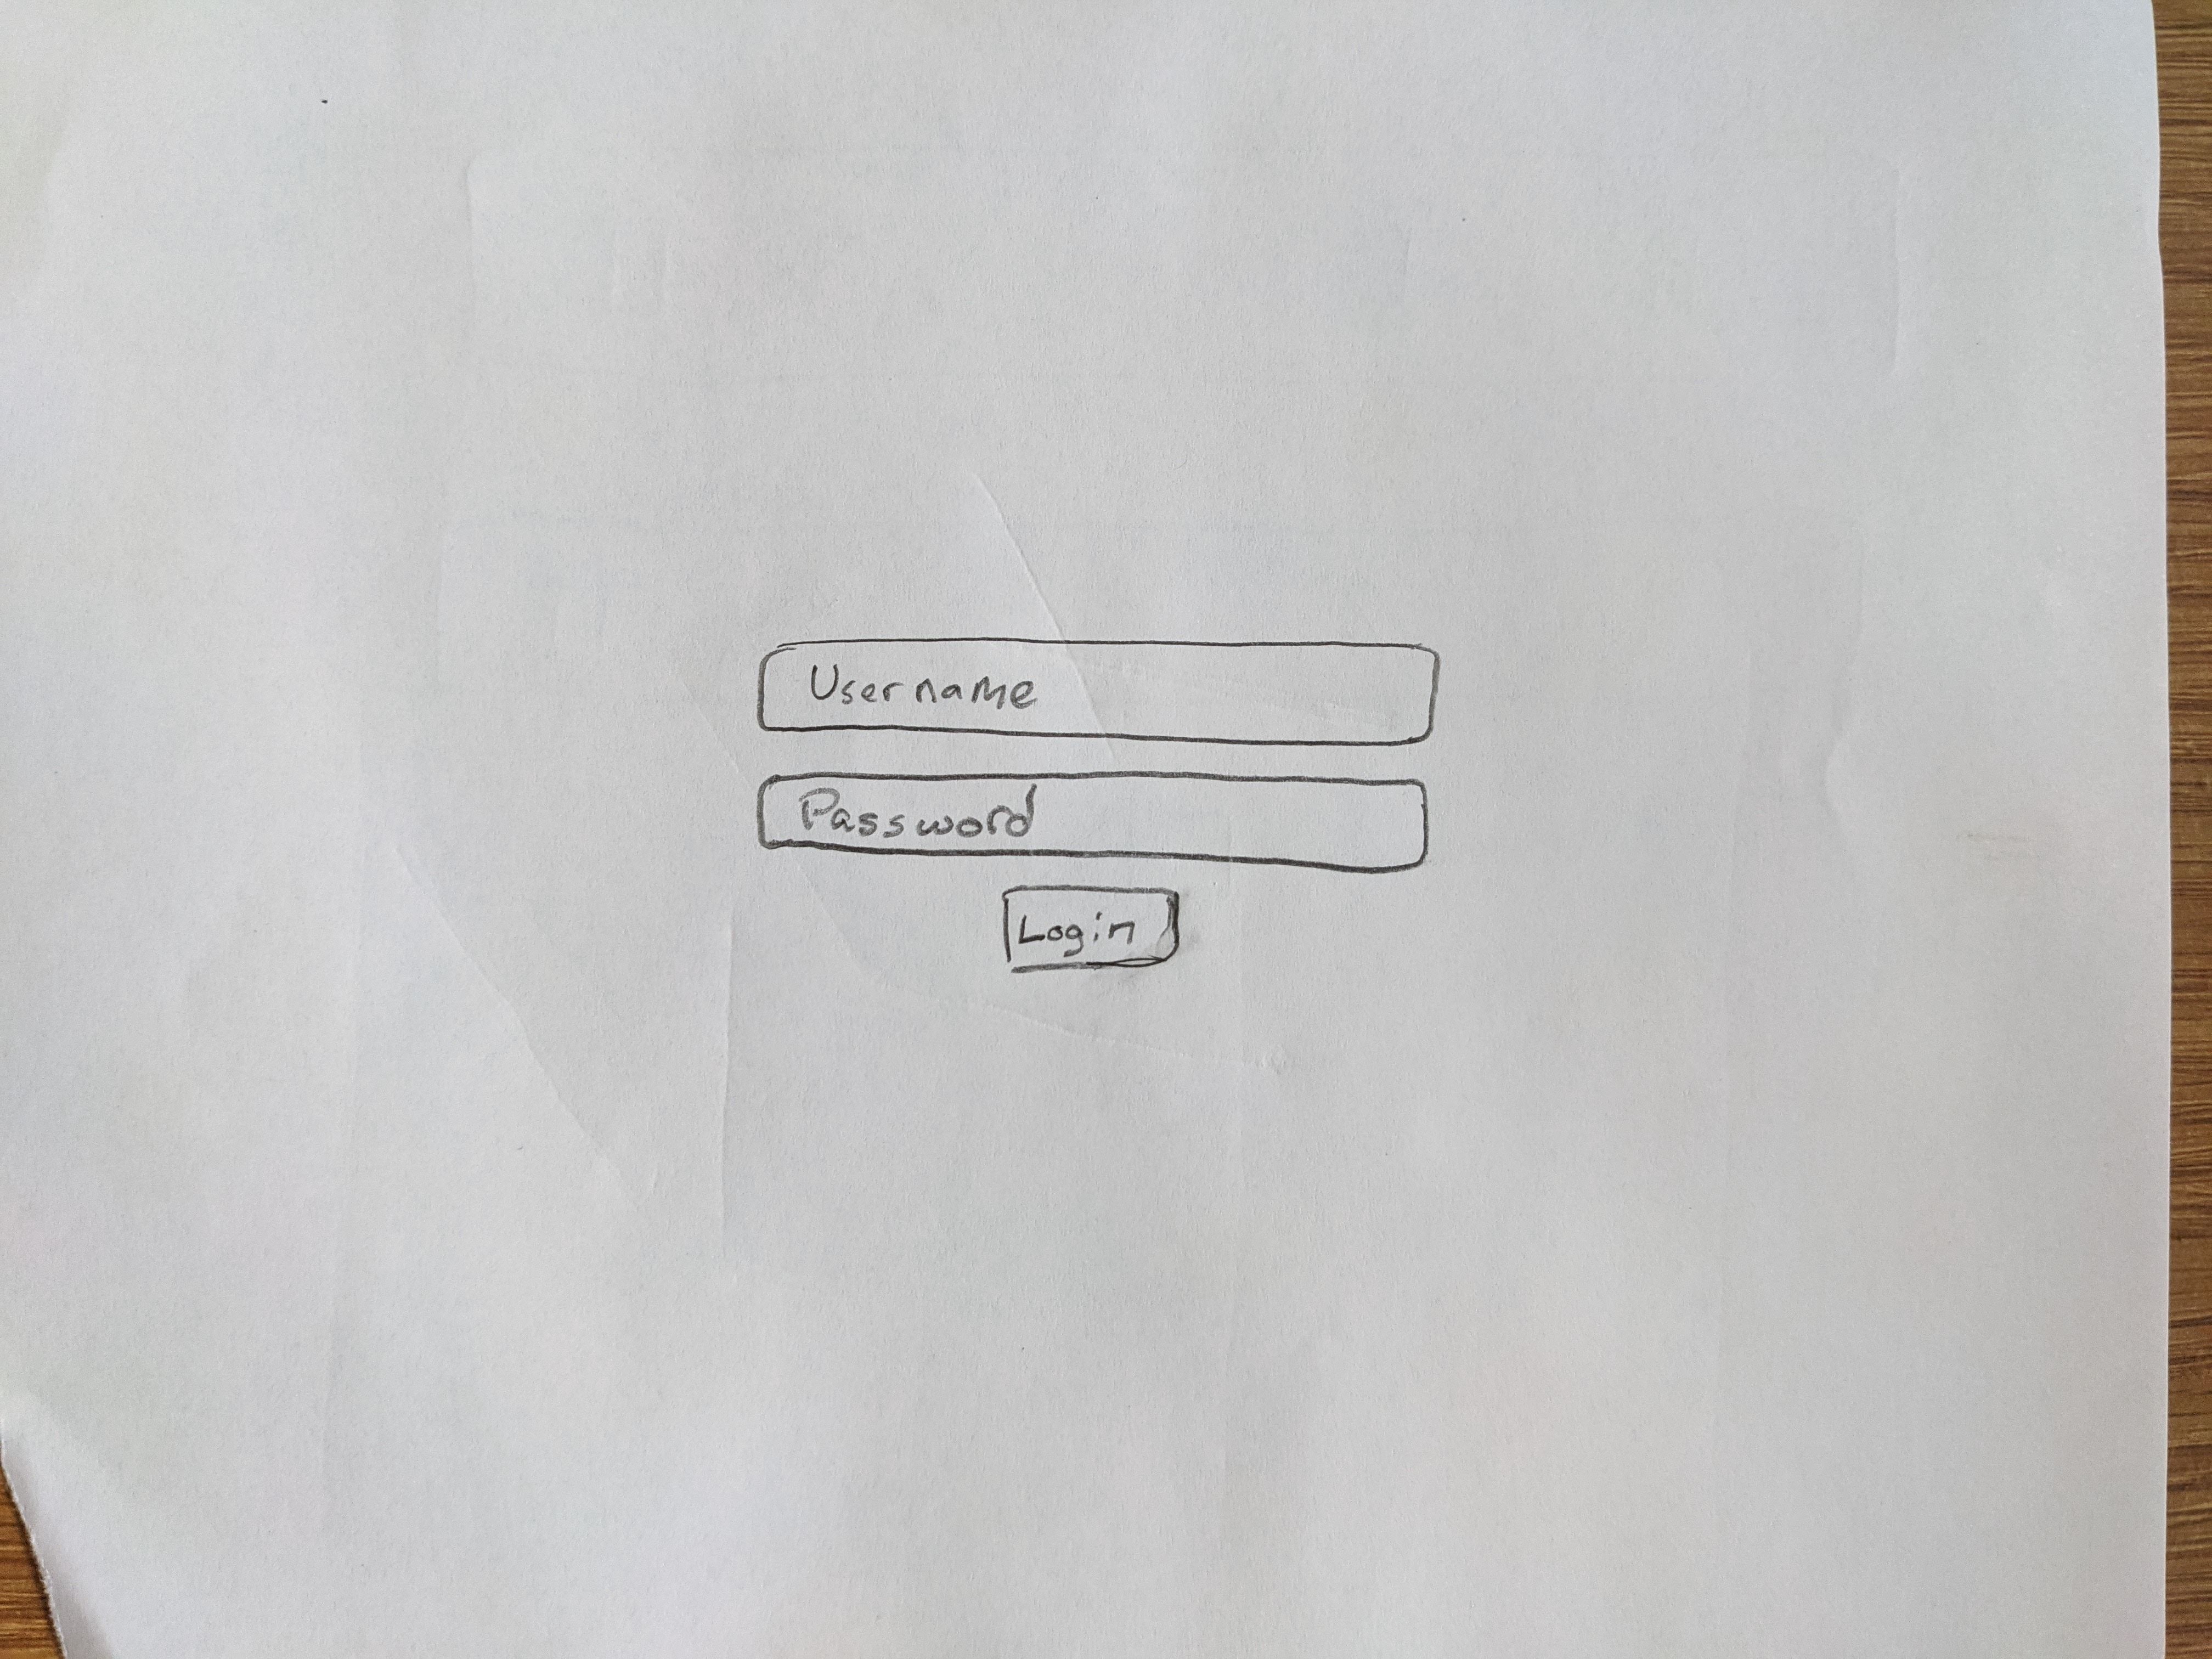 Username
Password
Login